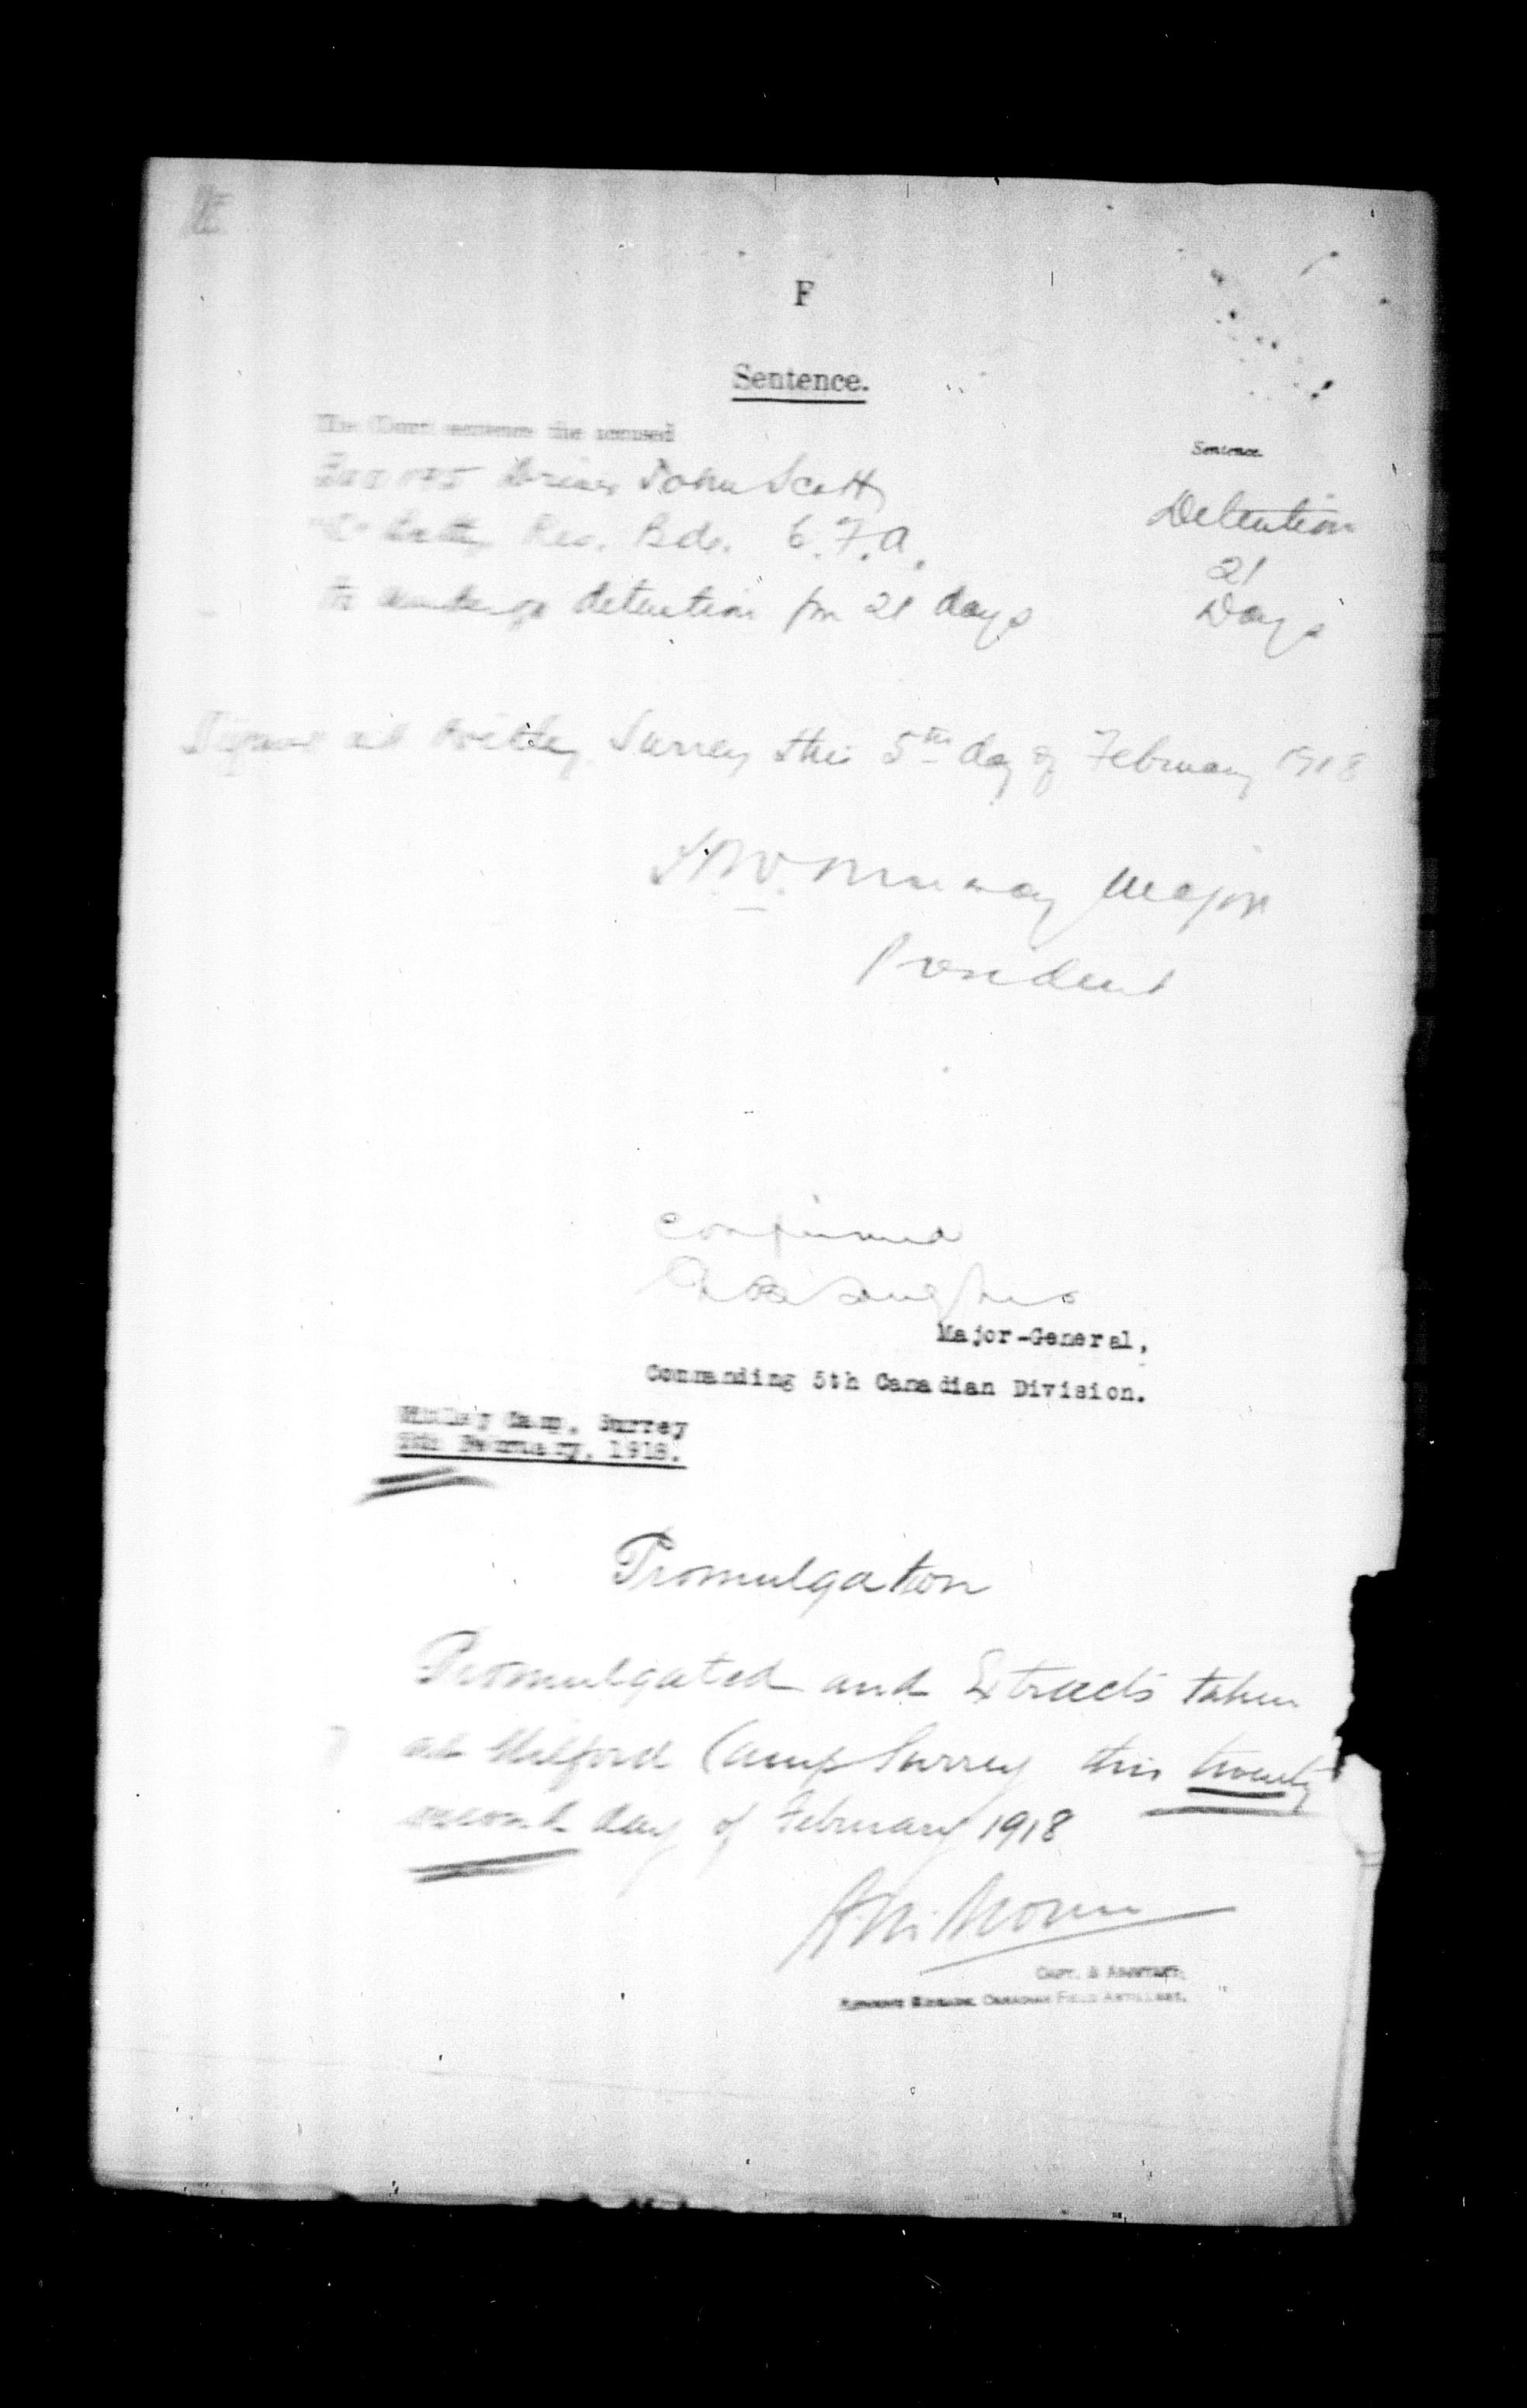 F
Sentence.
The Court sentence the accused
Sentence
Driver John Scott
Detention
Res. Bde. C.F.A.
21
to undergo detention for 21 days
Days
Signed at Witley Surrey this 5th day of February 1918
Murray Major
President
Confirmed
Major-General,
Commanding 5th Canadian Division.
Witley Camp, Surrey
February, 1918.
Promulgation
Promulgated and Extracts taken
at Milford Camp Surrey this twenty
second day of February 1918
Capt. & Adjutant,
Reserve Brigade, Canadian Field Artillery.